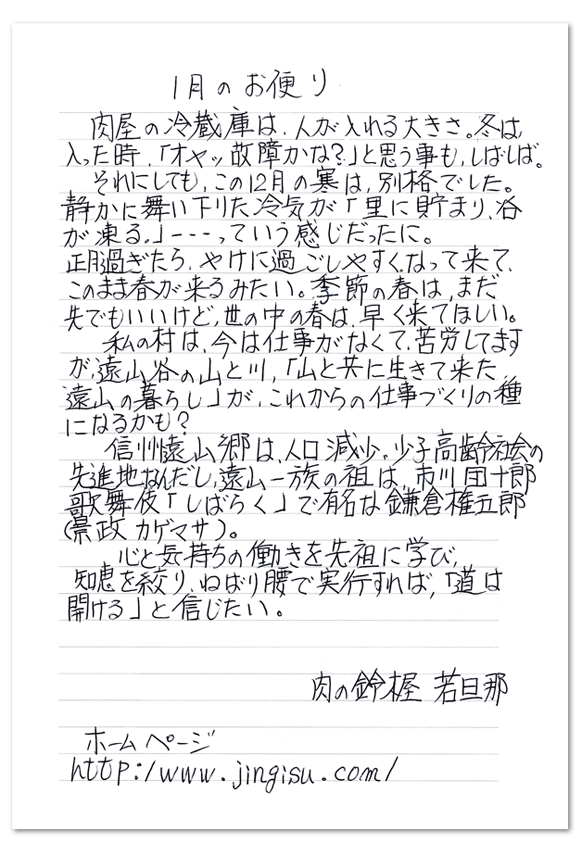 1月のお便り
肉屋の冷蔵庫は、人が入れる大きさ。冬は、
入った時、「オヤッ故障かな?」と思う事も、しばしば。
それにしても、この12月の寒は、別格でした。
静かに舞い下りた冷気が「里に貯まり、谷
が凍る。」---っていう感じだったに。
正月過ぎたら、やけに過ごしやすくなって来て、
このまま春が来るみたい。季節の春は、まだ
先でもいいけど、世の中の春は、早く来てほしい。
私の村は、今は仕事がなくて、苦労してます
が、遠山谷の山と川、「山と共に生きて来た、
遠山の暮らし」が、これからの仕事づくりの種
になるかも?
信州遠山郷は、人口減少、少子高齢社会の
先進地なんだし、遠山一族の祖は、市川団十郎
歌舞伎「しばらく」で有名な鎌倉権五郎
(景政 カゲマサ)。
心と気持ちの働きを先祖に学び、
知恵を絞り、ねばり腰で実行すれば、「道は
開ける」と信じたい。
肉の鈴木屋 若旦那
ホームページ
http:/www.jingisu.com/